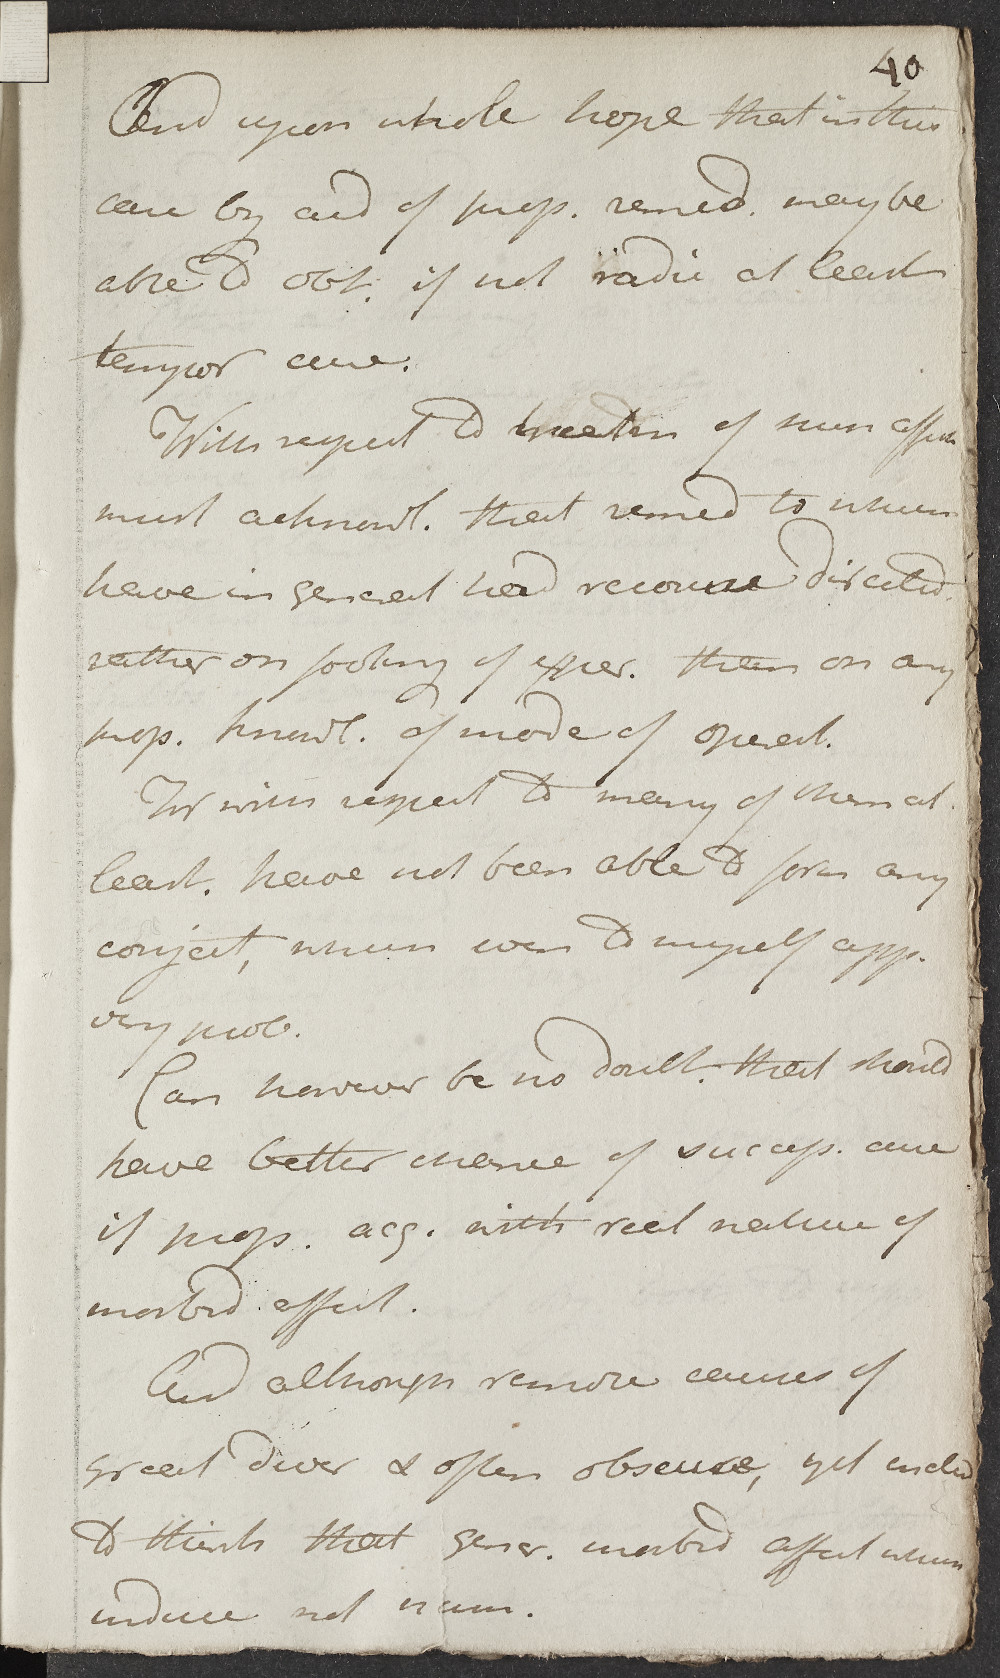 40
And upon whole hope that in this
case by aid of prop. remed. may be
able to obt. if not radic at least
tempor cure.
With respect to treatm of such affect
must acknowl. that remed to which
have in general had recourse directed
rather on footing of exper. than on any
prop. knowl. of mode of operat.
For with respect to many of them at
least. have not been able to form any
conject, which even to myself app.
very prob.
Can however be no doubt. that should
have better chance of success. cure
if prop. acq. with real nature of
morbid affect.
And although remote causes of
great diver & often obscure, yet inclin
to think that gener. morbid affect which
induce not num.